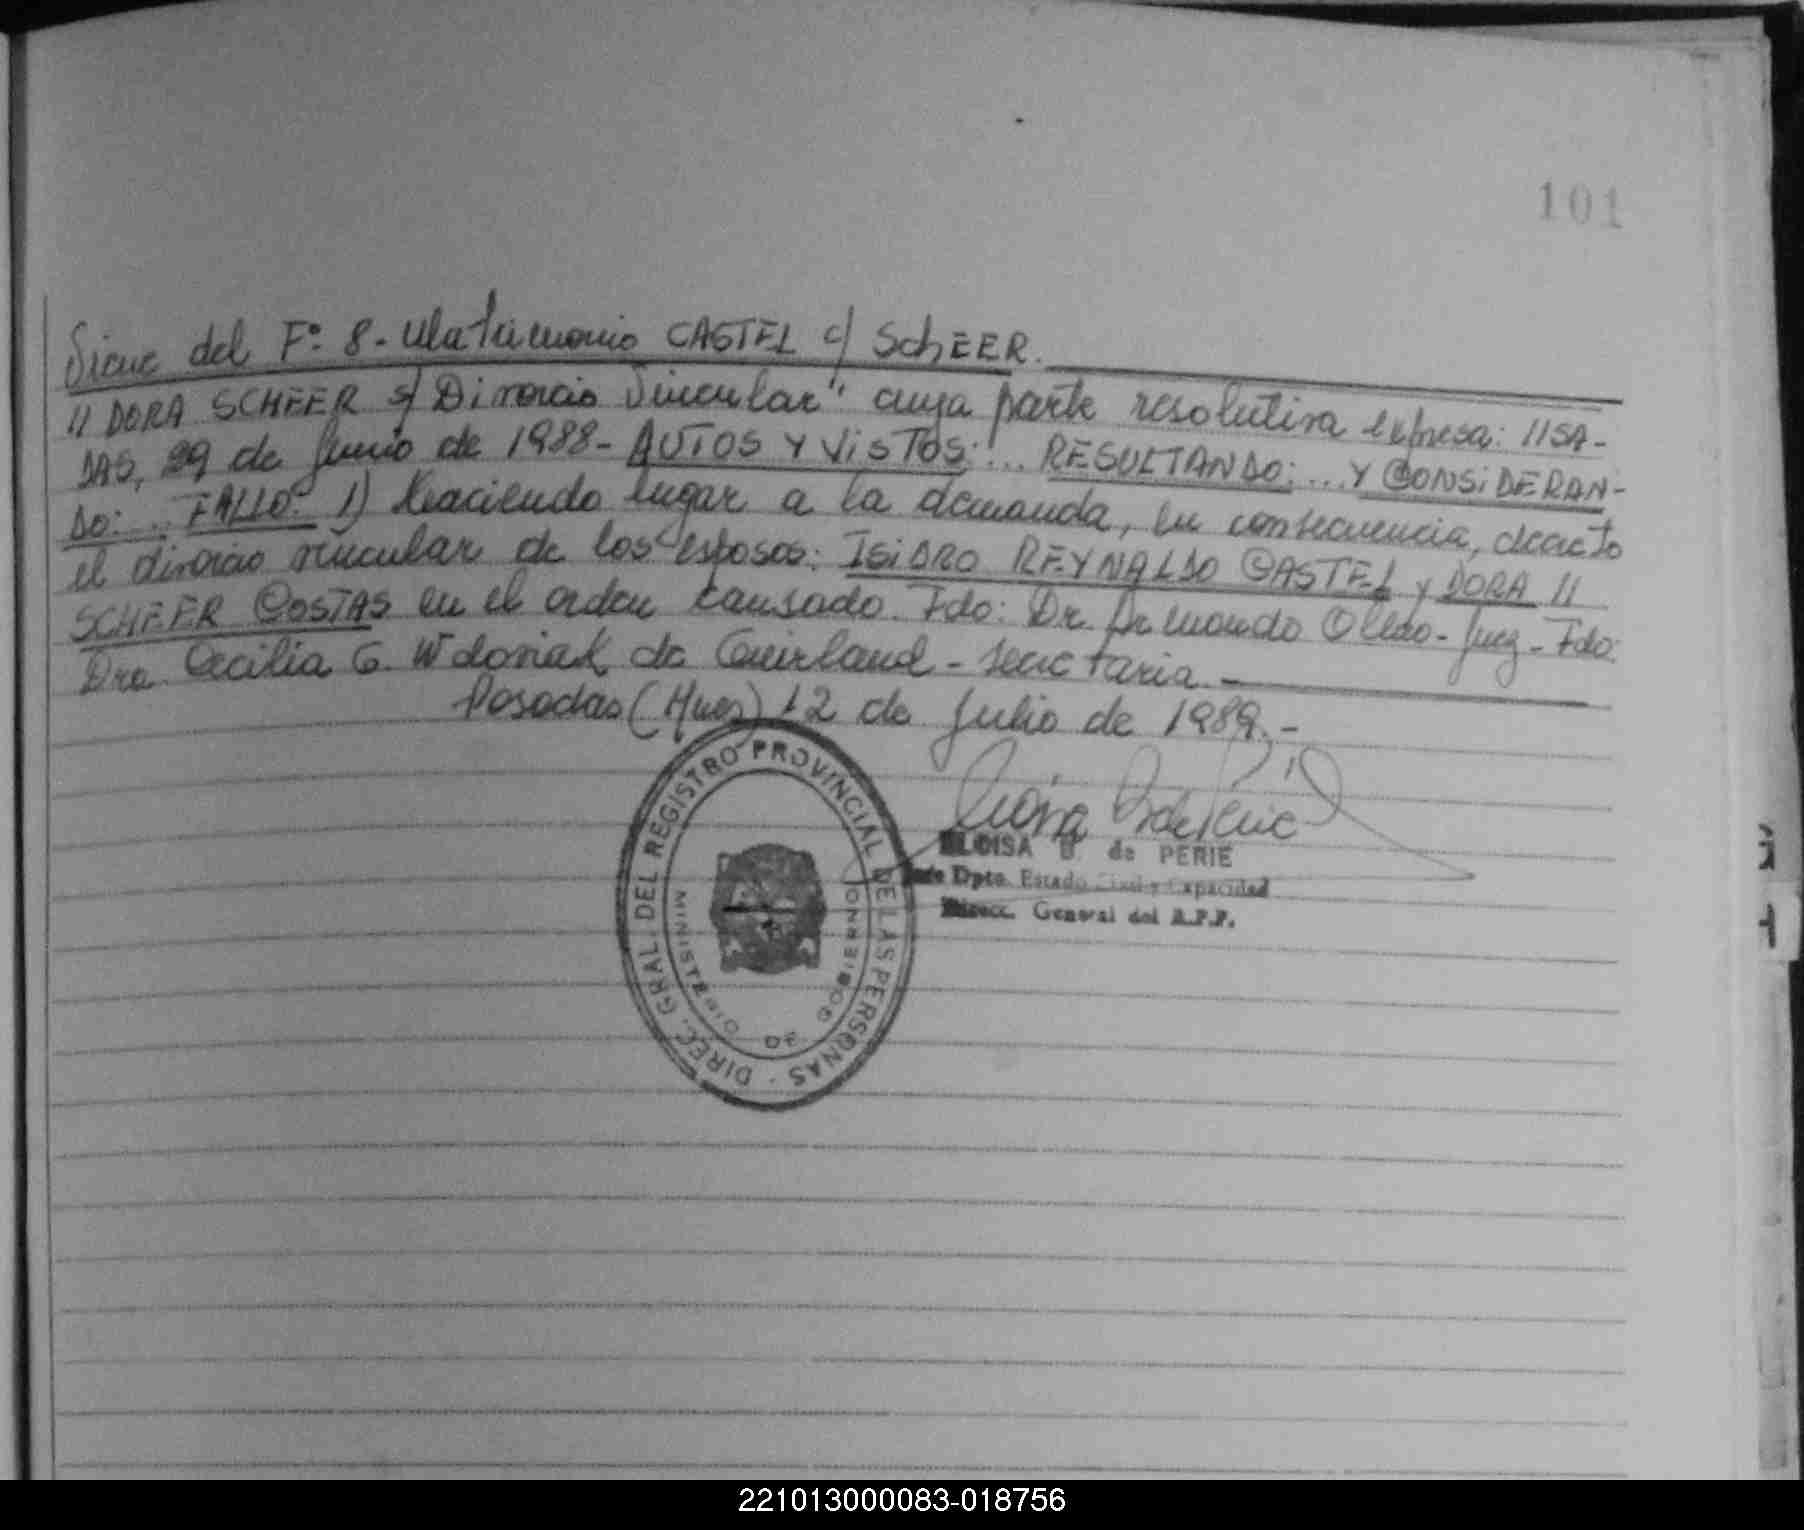 101
Sigue del Fº 8 - Matrimonio CASTEL c/ SchEER.
// DORA SCHEER s/ Divorcio Vincular" cuya parte resolutiva expresa: //SA-
DAS, 29 de Junio de 1988 - AUTOS Y ViSTOS:... RESULTANDO:... Y CONSiDERAN-
DO:... FALLO: 1) Haciendo lugar a la demanda, en consecuencia, decreto
el divorcio vincular de los esposos: ISiDRO REYNALDO CASTEL y DORA //
SCHEER COSTAS en el orden causado. Fdo: Dr. Armando Olmedo - Juez - Fdo:
Dra. Cecilia G. de - secretaria -
Posadas (Mnes) 12 de Julio de 1989.-
ELOISA B. de PERIE
Jefe Dpto. Estado Civil y Capacidad
Direcc. General del R.P.P.
DIREC. GRAL. DEL REGISTRO PROVINCIAL DE LAS PERSONAS
MINISTERIO DE GOBIERNO
221013000083-018756